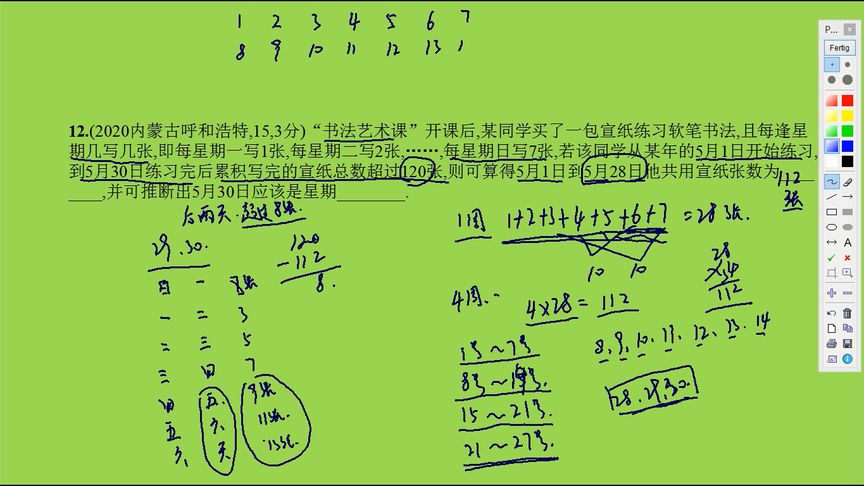 1 2 3 4 5 6 7
8 9 10 11 12 13 1
P...
Fertig
12.(2020内蒙古呼和浩特,15,3分)“书法艺术课”开课后,某同学买了一包宣纸练习软笔书法,且每逢星
期几写几张,即每星期一写1张,每星期二写2张,……,每星期日写7张,若该同学从某年的5月1日开始练习,
到5月30日练习完后累积写完的宣纸总数超过120张,则可算得5月1日到5月28日他共用宣纸张数为
____,并可推断出5月30日应该是星期________.
112
张
后两天.超过8张.
29.30.
120
-112
8.
日 一 8张
一 二 3
二 三 5
三 四 7
四 五. 9张
五 六. 11张.
六 天 13张.
1周 1+2+3+4+5+6+7 =28张.
10 10
4周.. 4×28= 112
28
×4
112
1号~7号
8号~14号.
15~21号.
21~27号.
8. 9. 10. 11. 12. 13. 14
28.29.30.